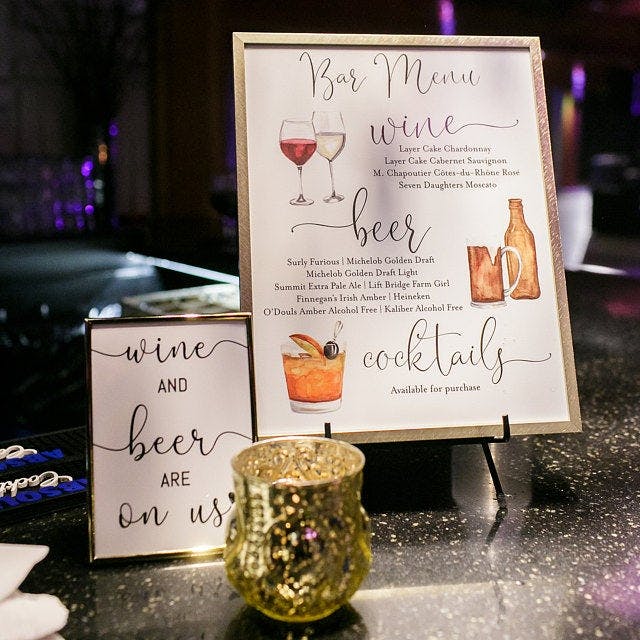 Bar Menu
wine
Layer Cake Chardonnay
Layer Cake Cabernet Sauvignon
M. Chapoutier Côtes-du-Rhône Rosé
Seven Daughters Moscato
beer
Surly Furious | Michelob Golden Draft
Michelob Golden Draft Light
Summit Extra Pale Ale | Lift Bridge Farm Girl
Finnegan's Irish Amber | Heineken
O'Douls Amber Alcohol Free | Kaliber Alcohol Free
cocktails
Available for purchase
wine
AND
beer
ARE
on us